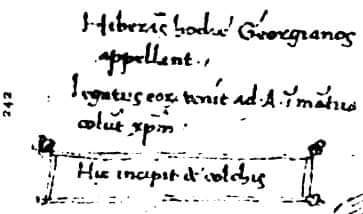 Hiberis̄ hodie Georgianos
appellant.
legatus eoꝝ venit ad .A. i
colūt xp̄m
Hic incipit de colchis
242